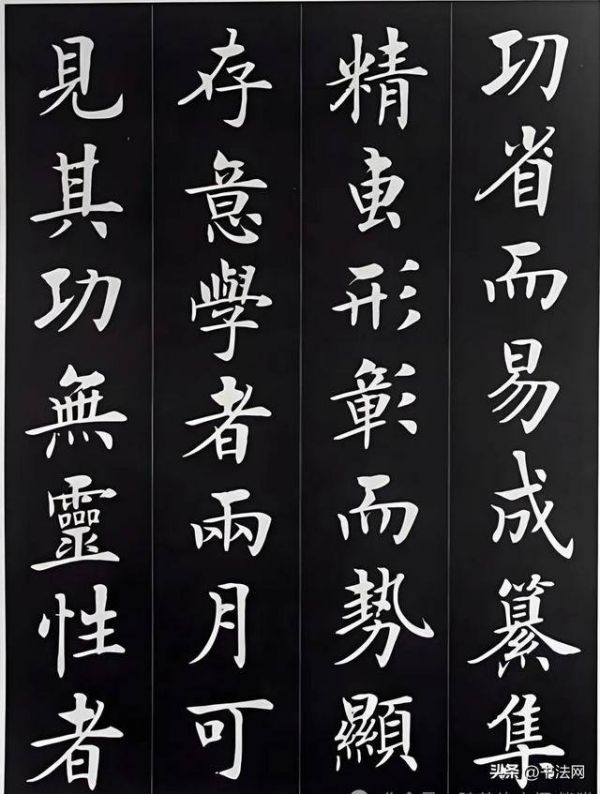 功省而易成纂集
精専形彰而勢顯
存意學者兩月可
見其功無靈性者
头条 @书法网